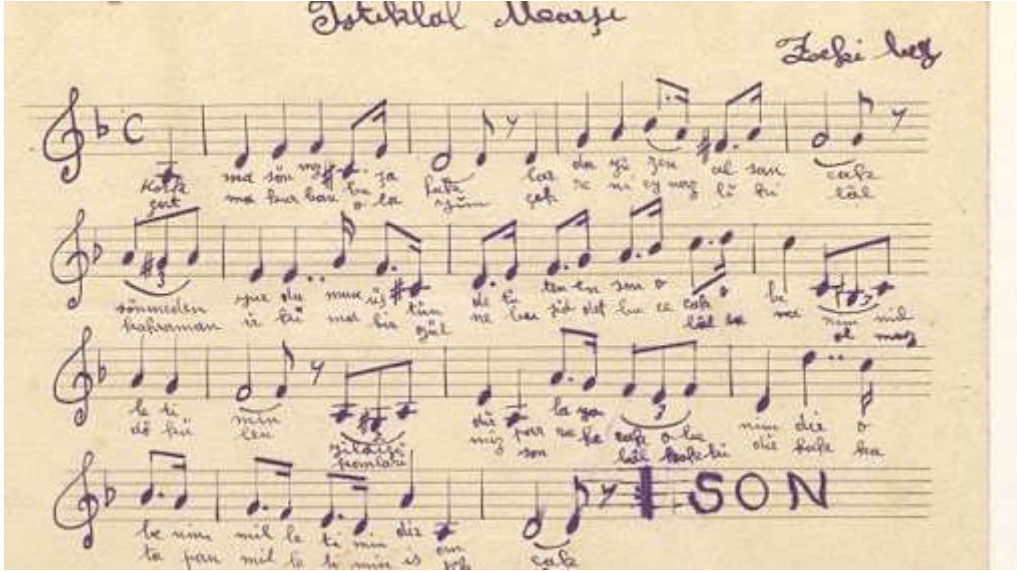 İstiklal Marşı
Zeki bey
C
Kork ma sön mez bu şa fak lar da yü zen al san cak
çat ma kur ban o la yım çeh re ni ey naz lı hi lâl
sönmeden yur du mun üs tün de tü ten en son o cak o be nim mil
kahraman ır kı ma bir gül ne bu şid det bu ce lâl sa na ol maz
le ti min yıldızı dır par la ya cak o be nim dir o
dö kü len kanları mız son ra he lâl hak kı dır hak ka
be nim mil le ti min dir an cak
ta pan mil le ti min is tik
SON